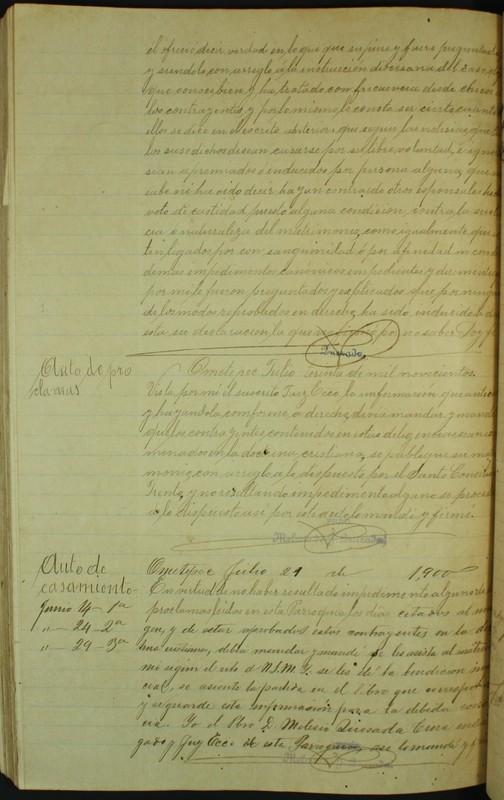 el ofreció decir verdad en lo que supiere y fuere preguntado
y siendolo, con arreglo á la instrucción diocesana del caso, dijo:
que conoce bien y ha tratado con frecuencia desde chicos á
los contrayentes y por lo mismo le consta ser cierto cuanto
ellos se dice en el escrito anterior: que segun las noticias, que
los susodichos desean casarse por su libre voluntad, é ignora
sean apremiados ó inducidos por persona alguna, que
sabe ni ha oido decir hayan contraido otros esponsales hecho
voto de castidad puesto alguna condición, contra la
cia ó naturaleza del matrimonio, como igualmente que
tén ligados por consanguinidad ó por afinidad ni con
demas impedimentos canónicos impedientes y dirimentes
por mi le fueron preguntados y esplicados, que por ninguno
de los modos reprobados en derecho, ha sido inducido á dar
esta su declaracion, la que no firmó por no saber Doy fé
Quesada
Auto de pro
clamas
Ometepec Julio treinta de mil novecientos.
Vista por mi el suscrito Juez Ecco. la información que antecede
y hayandola conforme á derecho, devia mandar y mandé
que los contrayentes contenidos en estas dilig.
minados en la doctrina cristiana, se publique su
monio, con arreglo á lo dispuesto por el Santo Concilio
Trento, y no resultando impedimento alguno se proceda
á lo dispuesto así por este auto lo mandé y firmé.
Auto de
casamiento
Junio 4 - 1a
" - 24 - 2a
" - 29 - 3a
Ometepec Julio 21 de 1,900
En virtud de no haber resultado impedimento alguno de
proclamas leidas en esta Parroquia los dias citados al
gen, y de estar aprobados estos contrayentes en la doc
trina cristiana, debia mandar y mandé se les asista al matrimo
nio segun el rito d N.S.M.Y. se les dé la bendicion nup
cial, se asiente la partida en el libro que corresponde
y se guarde esta Informacion para la debida constan
cia. Yo el Pbro. D. Melesio Quesada Cura encar
gado y Juez Ecco de esta Parroquia, asi lo mandé y